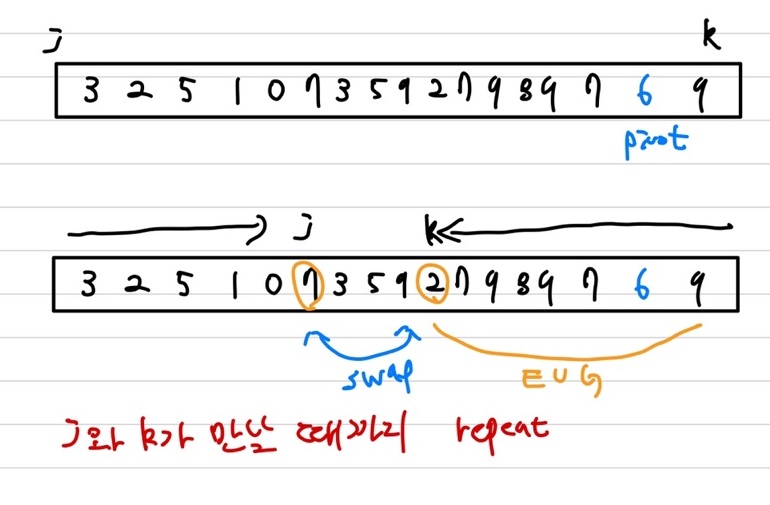 j k
3 2 5 1 0 7 3 5 9 2 7 9 8 9 7 6 9
pivot
j k
3 2 5 1 0 7 3 5 9 2 7 9 8 9 7 6 9
swap E U G
j와 k가 만날 때까지 repeat